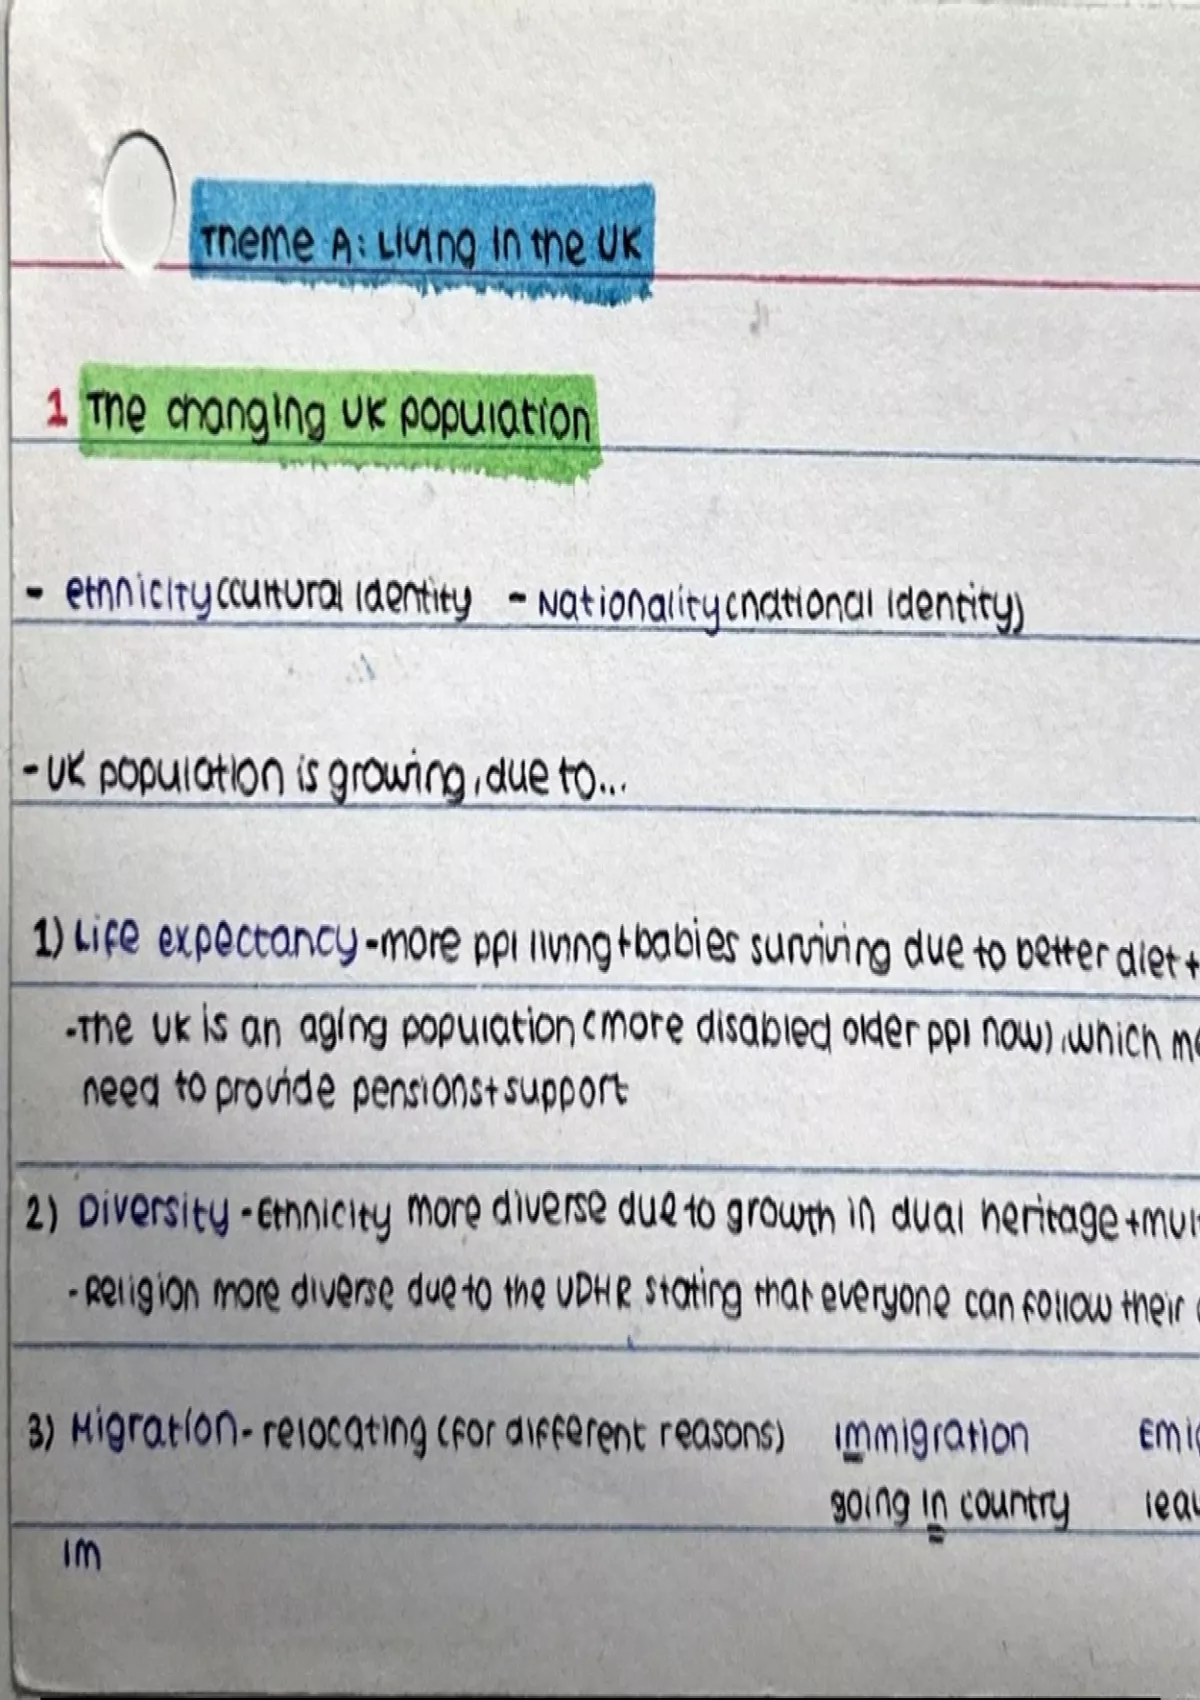 Theme A: Living in the UK
1 The changing UK population
- ethnicity (cultural identity - Nationality (national identity)
- UK population is growing, due to...
1) Life expectancy - more ppl living + babies surviving due to better diet +
- The UK is an aging population (more disabled older ppl now), which
need to provide pensions + support
2) Diversity - Ethnicity more diverse due to growth in dual heritage +
- Religion more diverse due to the UDHR stating that everyone can follow their
3) Migration - relocating (for different reasons) Immigration
going in country
Im